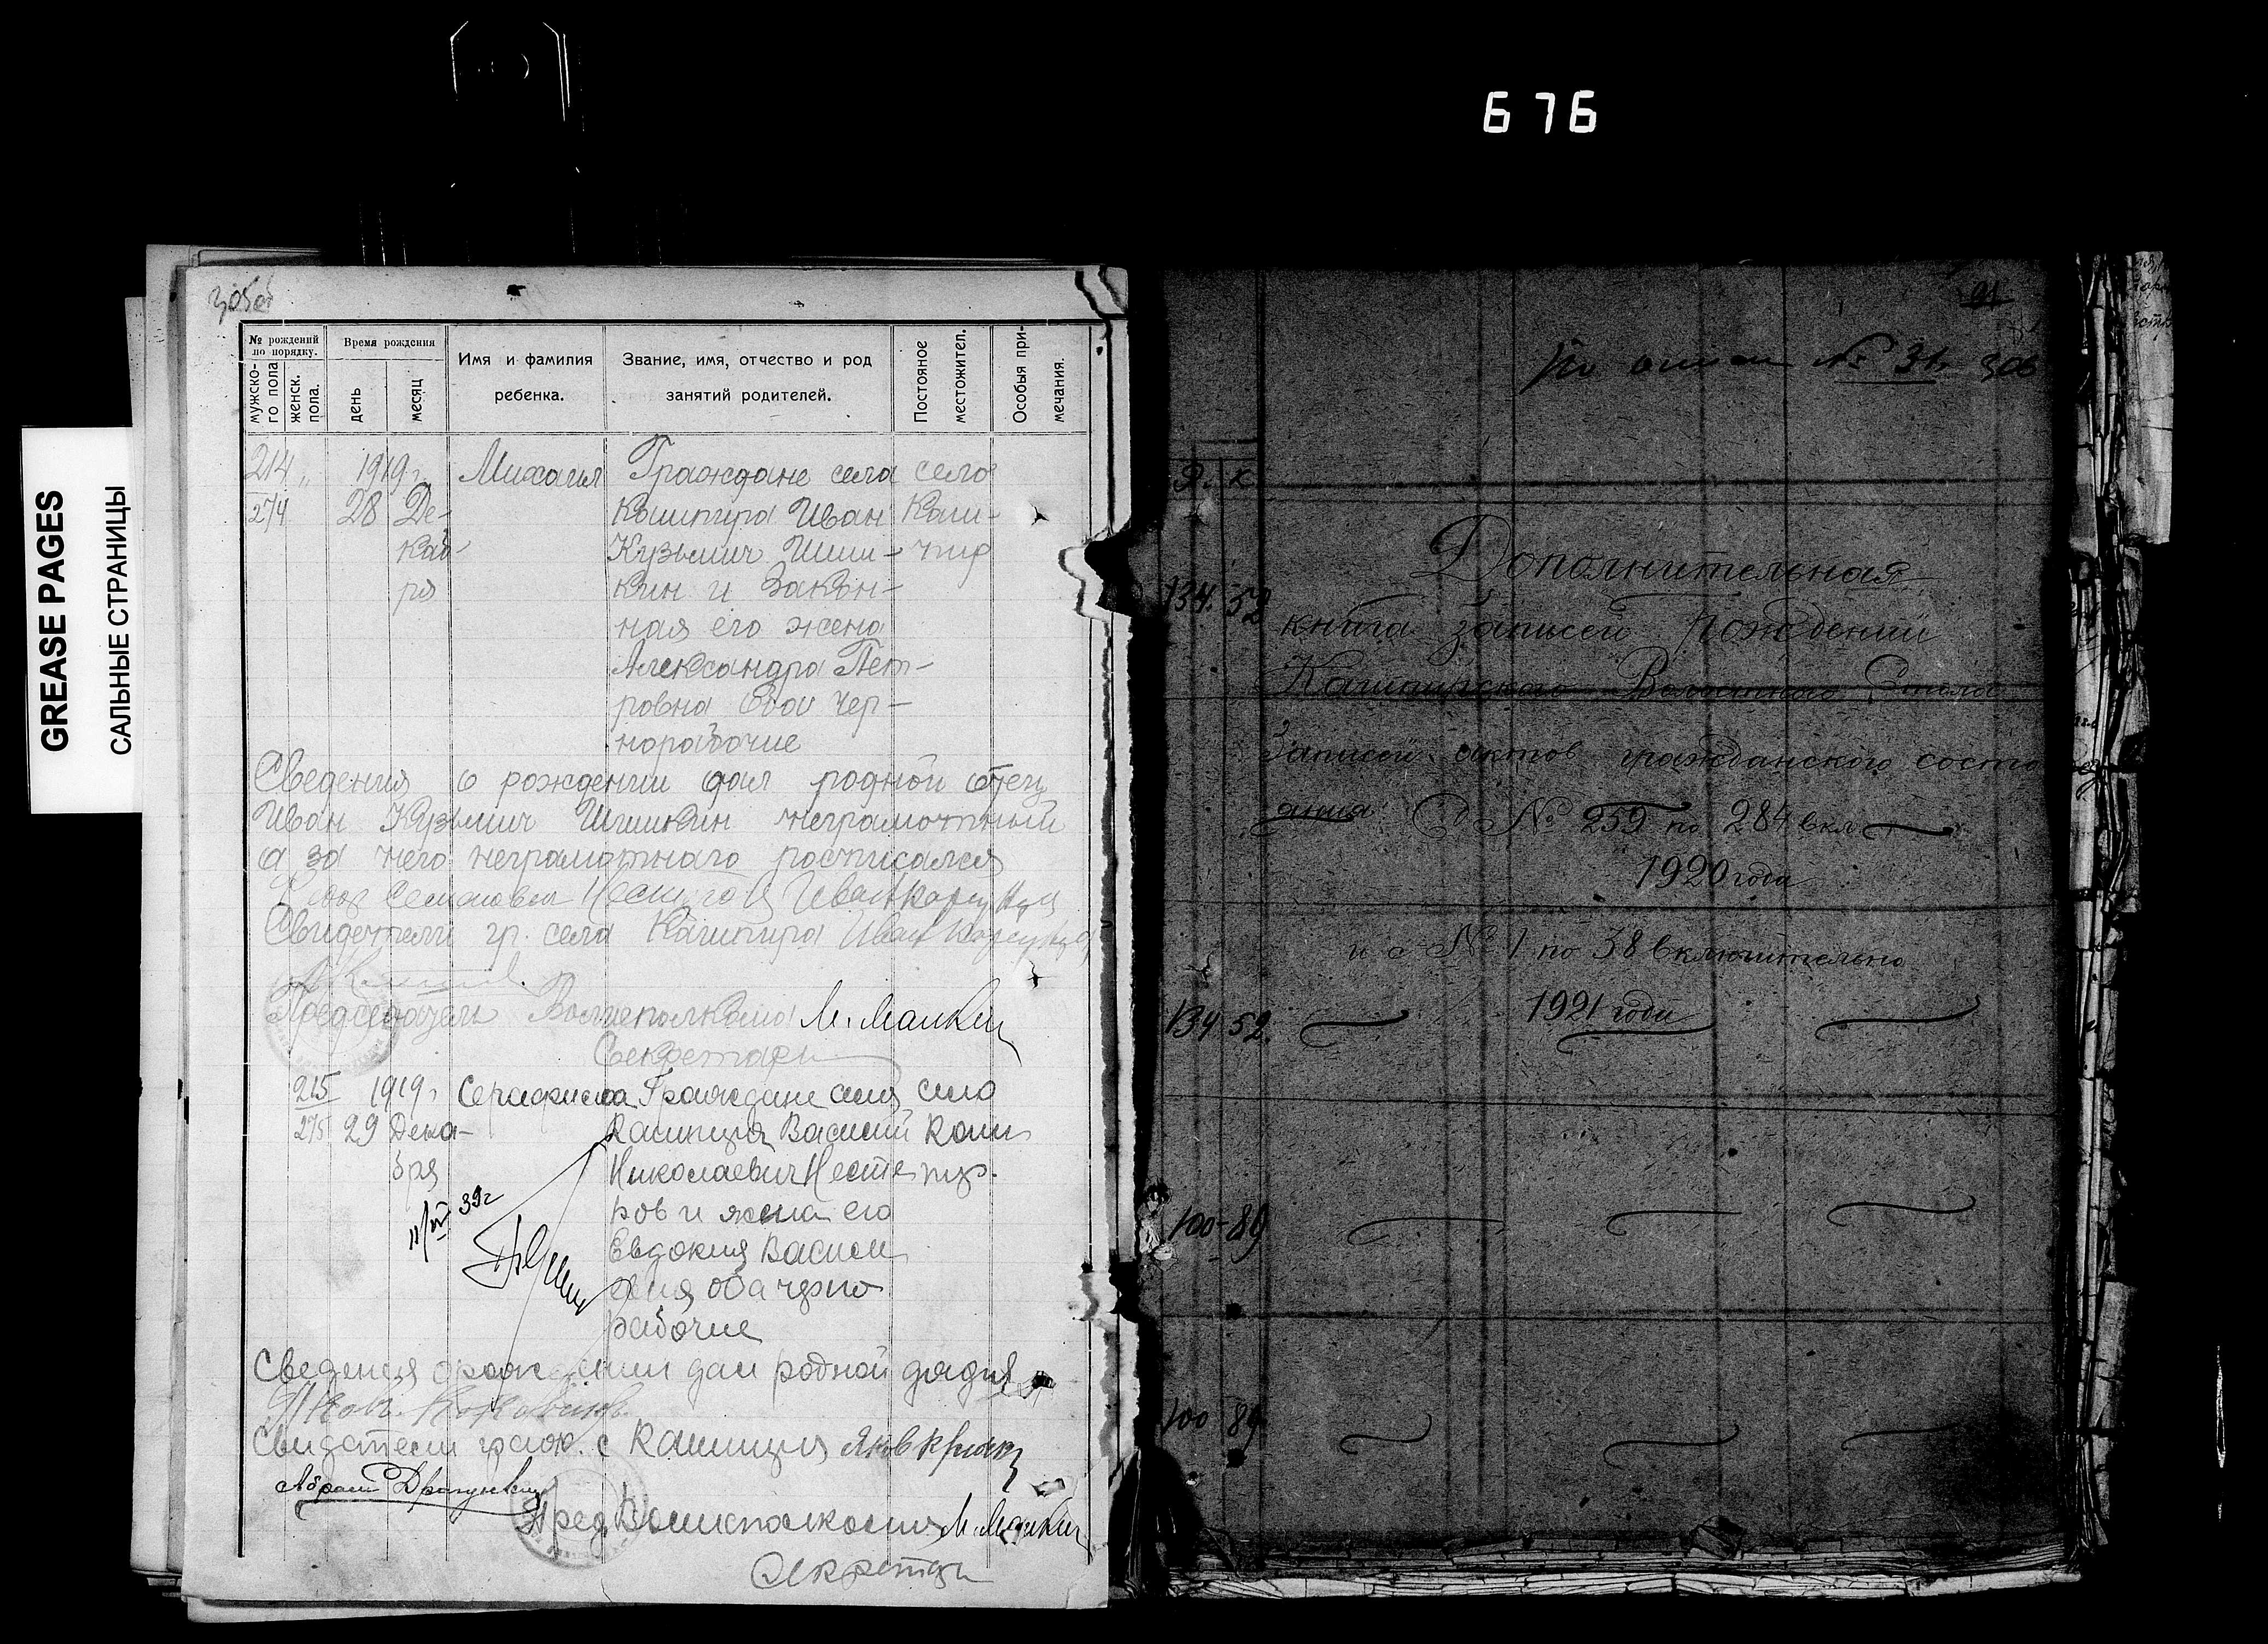 676
GREASE PAGES
САЛЬНЫЕ СТРАНИЦЫ
305об
№ рождений по порядку.
мужско-го пола
женск. пола.
Время рождения
день
месяц
Имя и фамилия ребенка.
Звание, имя, отчество и род занятий родителей.
Постояное местожител.
Особыя при-мечания.
214 " 1919 г. Михаил Граждане села село
274 28 Де- Кашпира Иван Каш-
каб- Кузьмич Шиш- пир
ря кин и Закон-
ная его жена
Александра Пет-
ровна Обои Чер-
норабочие
Сведения о рождении дал родной отец
Иван Кузьмич Шишкин неграмотный
а за него неграмотнаго росписался
Свидетели гр. села Кашпира Иван
Председатель Волисполкома М. Манкин
Секретарь
215 1919 г. Серафима Граждане села село
275 29 Дека- Кашпира Василий Каш
бря Николаевич Несте пир.
ров и жена его
11/VII 39г
Евдокия Васил
оба черно
рабочие
Сведения о рождении дал родной дядя
Свидетели граж. с Кашпира Яков
Абрам
Пред Волисполкома М. Манкин
Секретарь
91
По описи № 31. 306
М. Ж.
134. 52
Дополнительная
книга записей Рождений
Кашпирского Волостного Стола
Записей актов гражданского состо
яния С № 259 по 284 вкл
1920 года
и с № 1 по 38 включительно
134 52. 1921 года
100-89
100 89